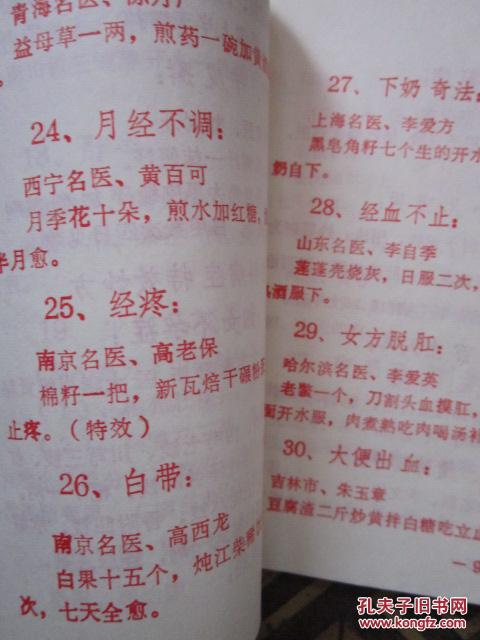 青海名医、
益母草一两，煎药一碗加黄
24、月经不调：
西宁名医、黄百可
月季花十朵，煎水加红糖，
半月愈。
25、经疼：
南京名医、高老保
棉籽一把，新瓦焙干碾粉
止疼。（特效）
26、白带：
南京名医、高西龙
白果十五个，炖江柴
次，七天全愈。
27、下奶 奇法：
上海名医、李爱方
黑皂角籽七个生的开水
奶自下。
28、经血不止：
山东名医、李自季
莲蓬壳烧灰，日服二次，
酒服下。
29、女方脱肛：
哈尔滨名医、李爱英
老鳖一个，刀割头血摸肛，
开水服，肉煮熟吃肉喝汤补
30、大便出血：
吉林市、朱玉章
豆腐渣二斤炒黄拌白糖吃立止
－9
孔夫子旧书网
www.kongfz.com